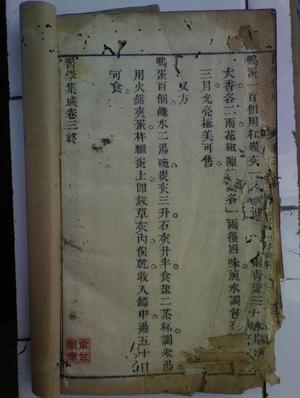 鴨蛋一百個用杠炭灰一
大香谷二兩花椒
一兩後四味煎水調包
三月光亮極美可售
又方
鴨蛋百個鹹水二湯碗炭灰三升石灰升半食鹽二茶杯調米湯
用火鉗夾蛋杵糊蛋上即放草灰內俟乾收入罈中過五十日
可食
醫學集成卷三終